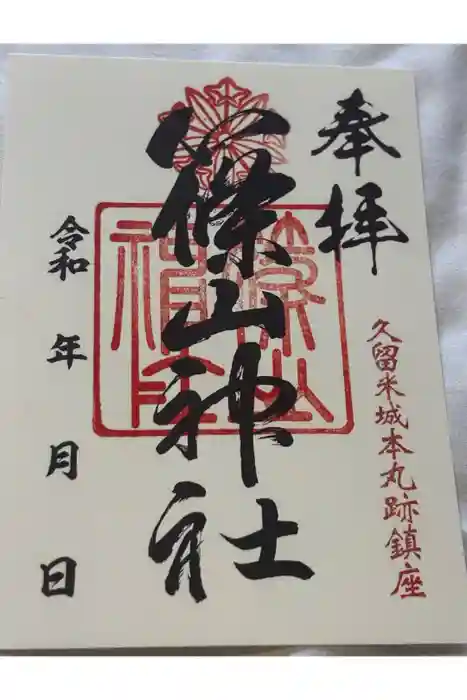 奉拝
久留米城本丸跡鎮座
篠山神社
令和 年 月 日